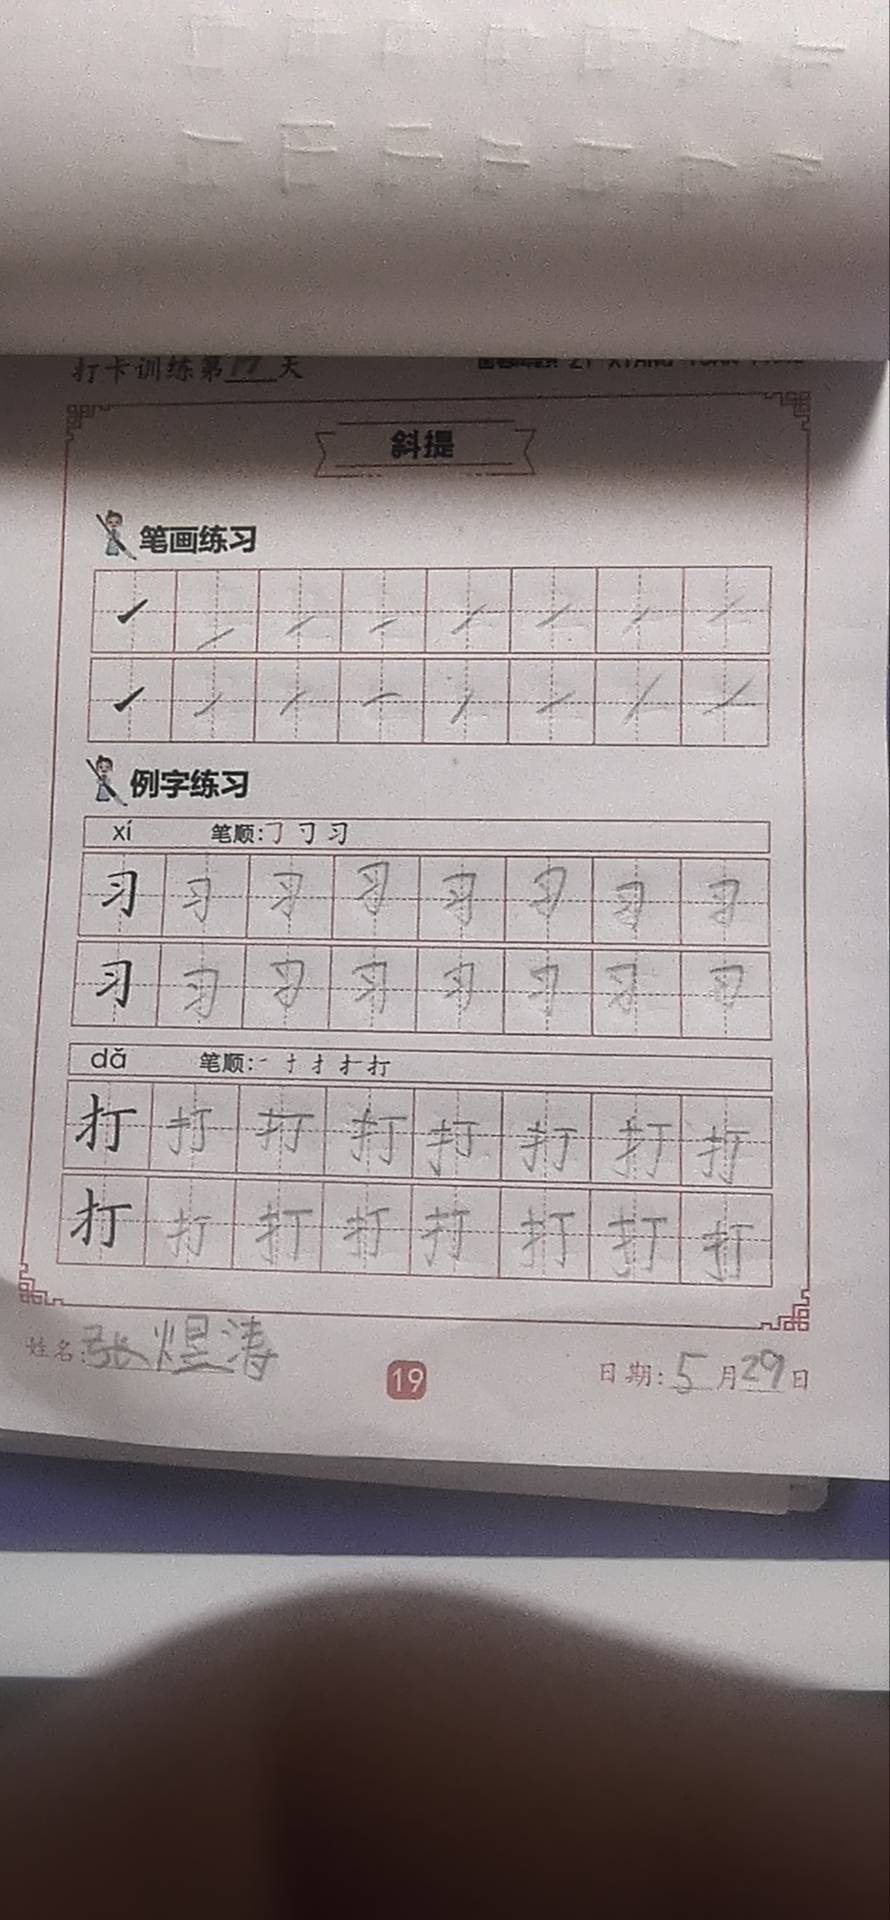 打卡训练第17天
斜提
笔画练习
例字练习
xí 笔顺:
习 习 习 习 习 习 习 习
习 习 习 习 习 习 习 习
dǎ 笔顺:
打 打 打 打 打 打 打 打
打 打 打 打 打 打 打 打
姓名:张煜涛
19
日期:5月29日